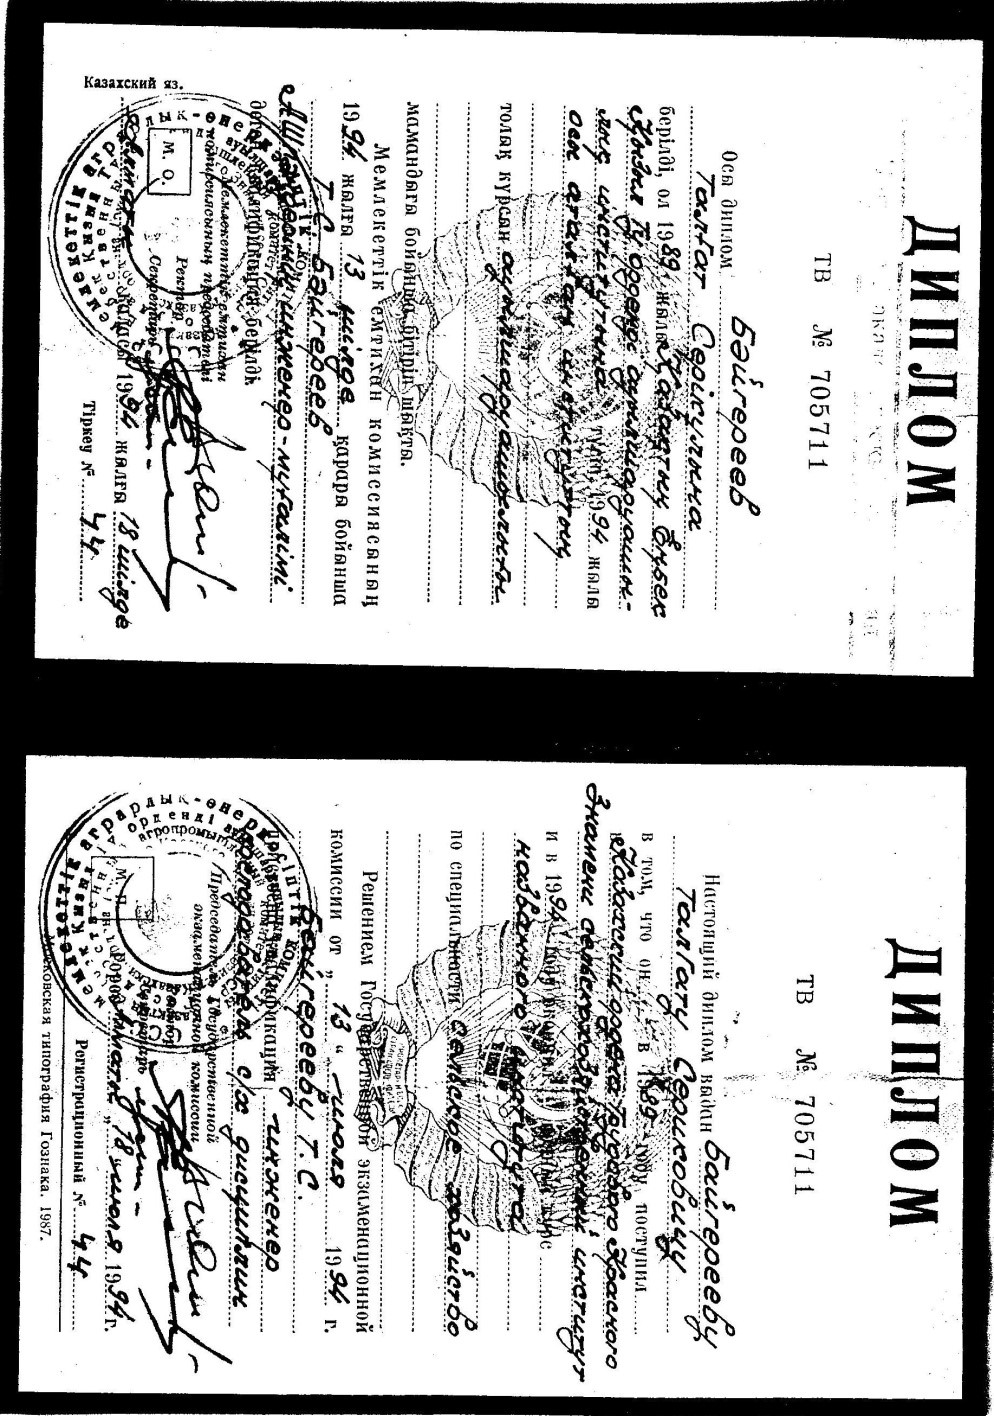 ДИПЛОМ
ТВ № 705711
Осы диплом Бәйгереев
Талғат Серікұлына
берілді, ол 1989 жылы Қазақтың Еңбек
Қызыл Ту орденді ауылшаруашы-
лық институтына түсіп, 1994 жылы
осы аталған институттың
толық курсын ауылшаруашылығы
мамандығы бойынша бітіріп шықты.
Мемлекеттік емтихан комиссиясының
1994 жылғы 13 шілде қарары бойынша
Т.С. Бәйгереев
АШП инженер-мұғалімі
деген квалификация берілді.
Мемлекеттік емтихан
комиссиясының председателі
Ректор
М. О.
Секретарь
Алматы қаласы 1994 жылғы 18 шілде
Тіркеу № 44
Казахский яз.
ДИПЛОМ
ТВ № 705711
Настоящий диплом выдан Байгерееву
Талгату Сериковичу
в том, что он в 1989 году поступил
в Казахский ордена Трудового Красного
Знамени сельскохозяйственный институт
и в 1994 году окончил полный курс
названного института
по специальности сельское хозяйство
Решением Государственной экзаменационной
комиссии от „13“ июля 1994 г.
Байгерееву Т.С.
присвоена квалификация инженер
преподаватель с/х дисциплин
Председатель Государственной
экзаменационной комиссии
Ректор
Секретарь
М. П.
Город Алматы „18“ июля 1994 г.
Регистрационный № 44
Московская типография Гознака. 1987.